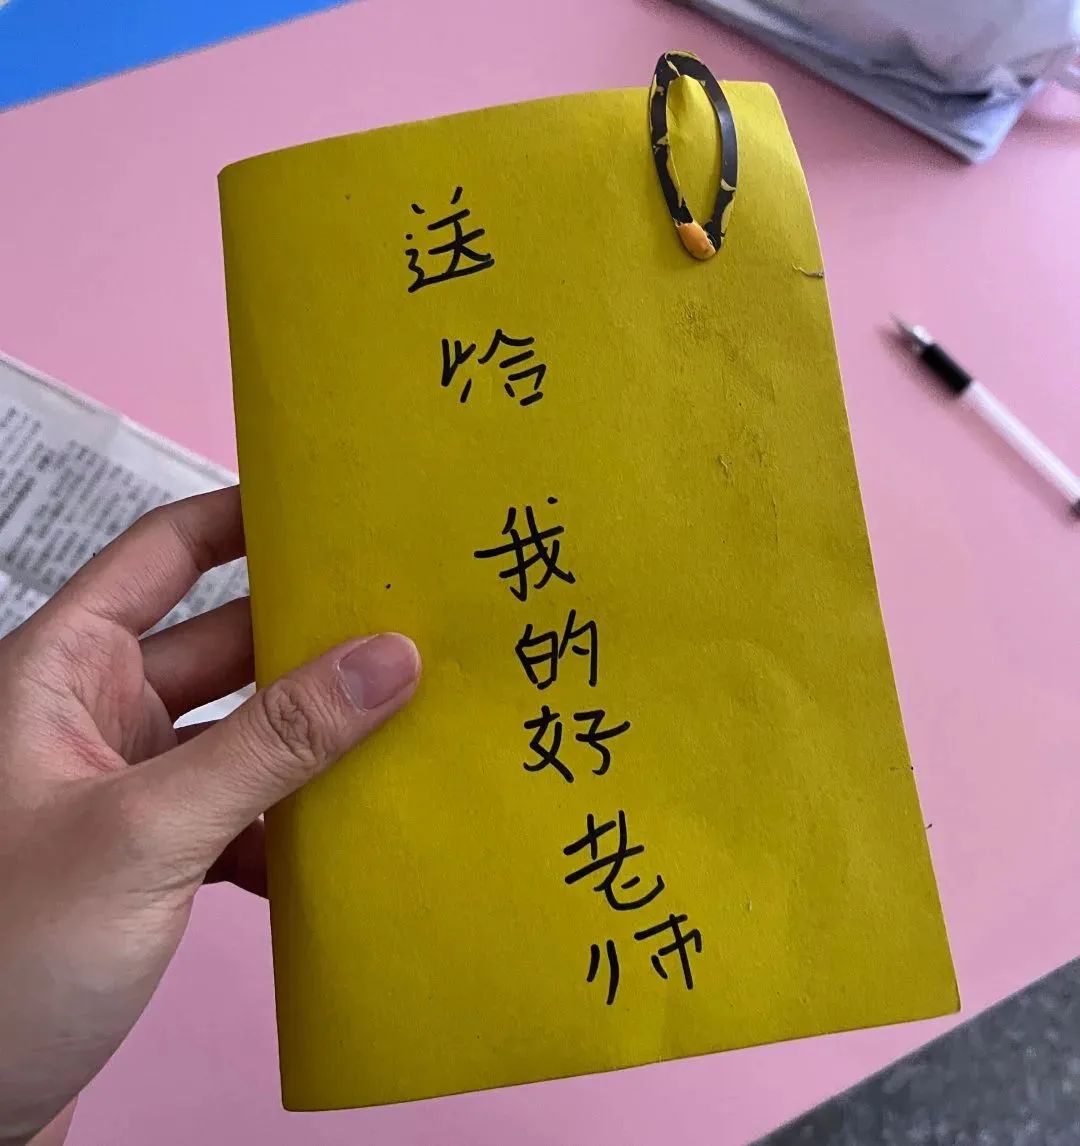 送恰我的好老师